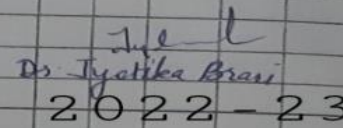 Dr. Jyotika Brari
2022-23